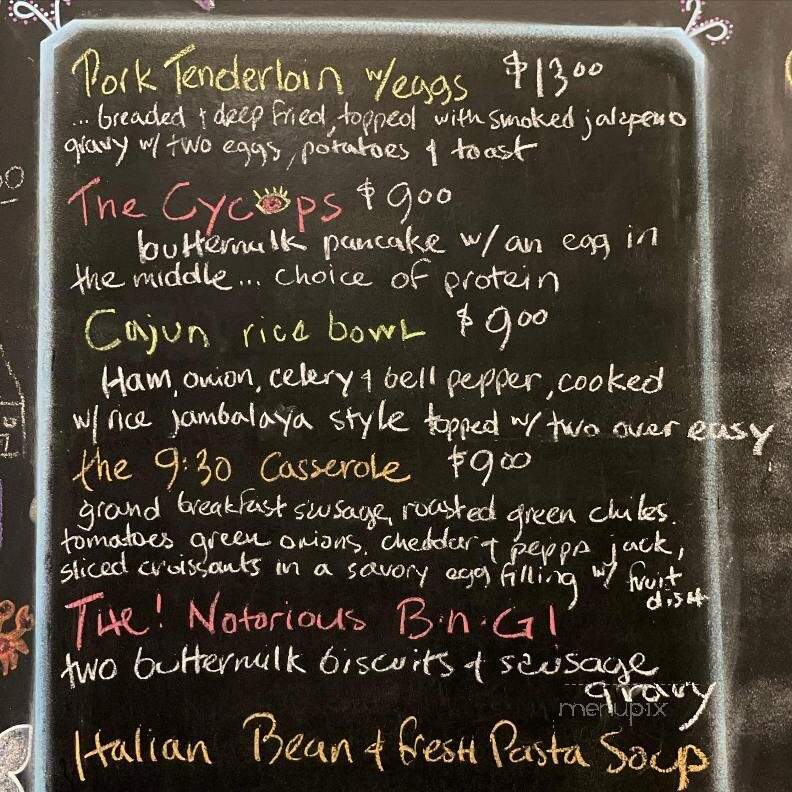 Pork Tenderloin w/eggs $13.00
... breaded & deep fried, topped with smoked jalapeno
gravy w/ two eggs, potatoes & toast
The Cycops $9.00
buttermilk pancake w/ an egg in
the middle... choice of protein
Cajun rice bowl $9.00
Ham, onion, celery & bell pepper, cooked
w/ rice jambalaya style topped w/ two over easy
the 9:30 Casserole $9.00
ground breakfast sausage, roasted green chiles.
tomatoes green onions, cheddar & pepper jack,
sliced croissants in a savory egg filling w/ fruit
dish
THE! Notorious B.n.G!
two buttermilk biscuits & sausage
gravy
menupix
Italian Bean & fresh Pasta Soup